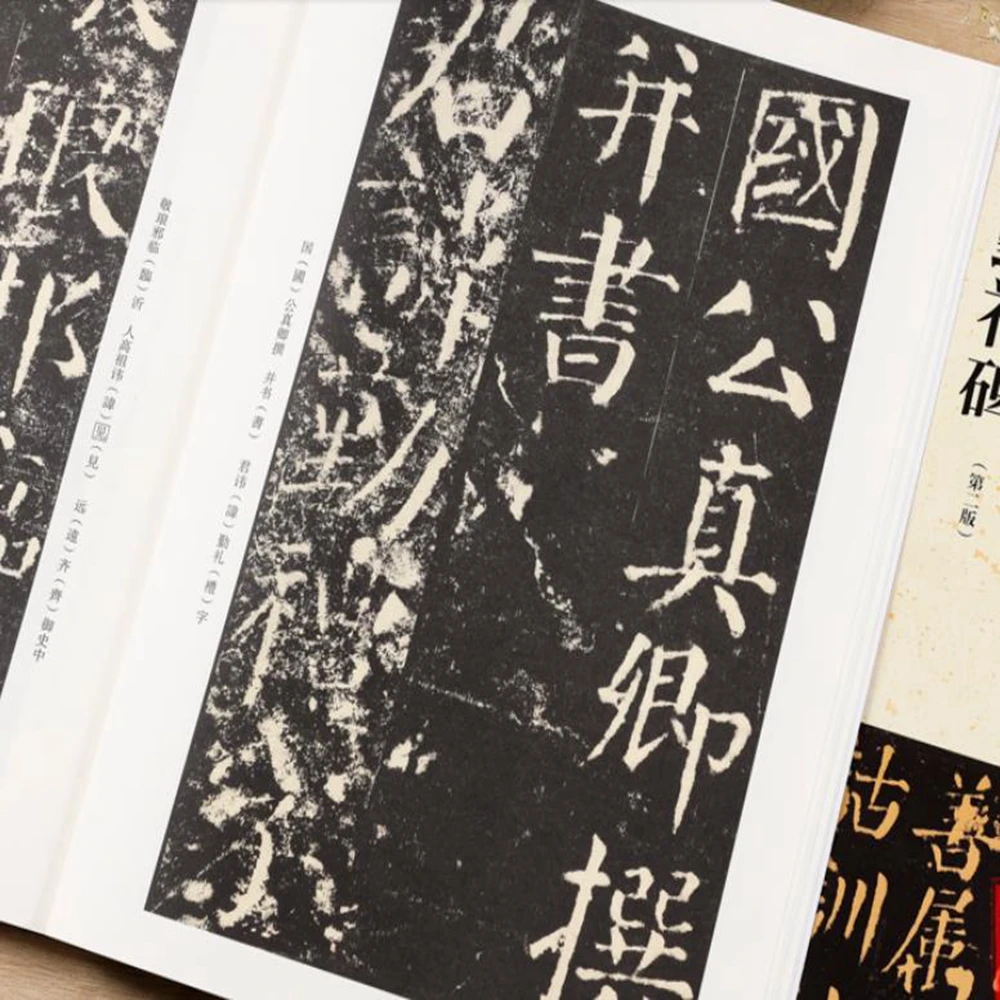 國公真卿撰
并書
君諱勤禮字
国（國）公真卿撰　并书（書）　君讳（諱）勤礼（禮）字
敬琅邪临（臨）沂　人高祖讳（諱）见（見）　远（遠）齐（齊）御史中
礼碑
（第二版）
善属
诂訓